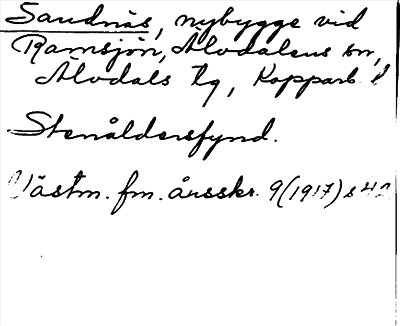 Sandnäs, nybygge vid
Ramsjön, Älvdalens sn,
Älvdals tg, Kopparb. l
Stenåldersfynd.
Västm. fm. årsskr. 9(1917) s 42